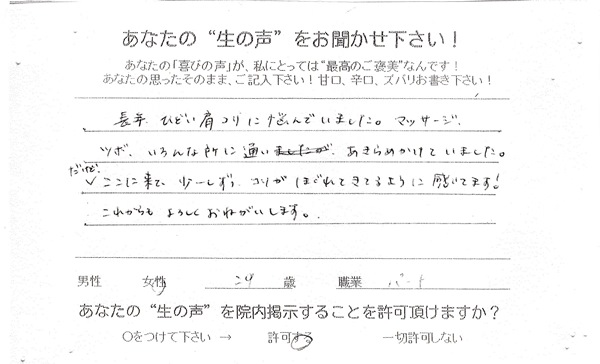 あなたの“生の声”をお聞かせ下さい！
あなたの「喜びの声」が、私にとっては“最高のご褒美”なんです！
あなたの思ったそのまま、ご記入下さい！甘口、辛口、ズバリお書き下さい！
長年、ひどい肩コリに悩んでいました。マッサージ、
ツボ、いろんな所に通いましたが、あきらめかけていました。
だけど、
ここに来て、少ーしずつ、コリがほぐれてきてるように感じてます！
これからもよろしくおねがいします。
男性 女性 29 歳 職業 パート
あなたの“生の声”を院内掲示することを許可頂けますか？
○をつけて下さい → 許可する 一切許可しない